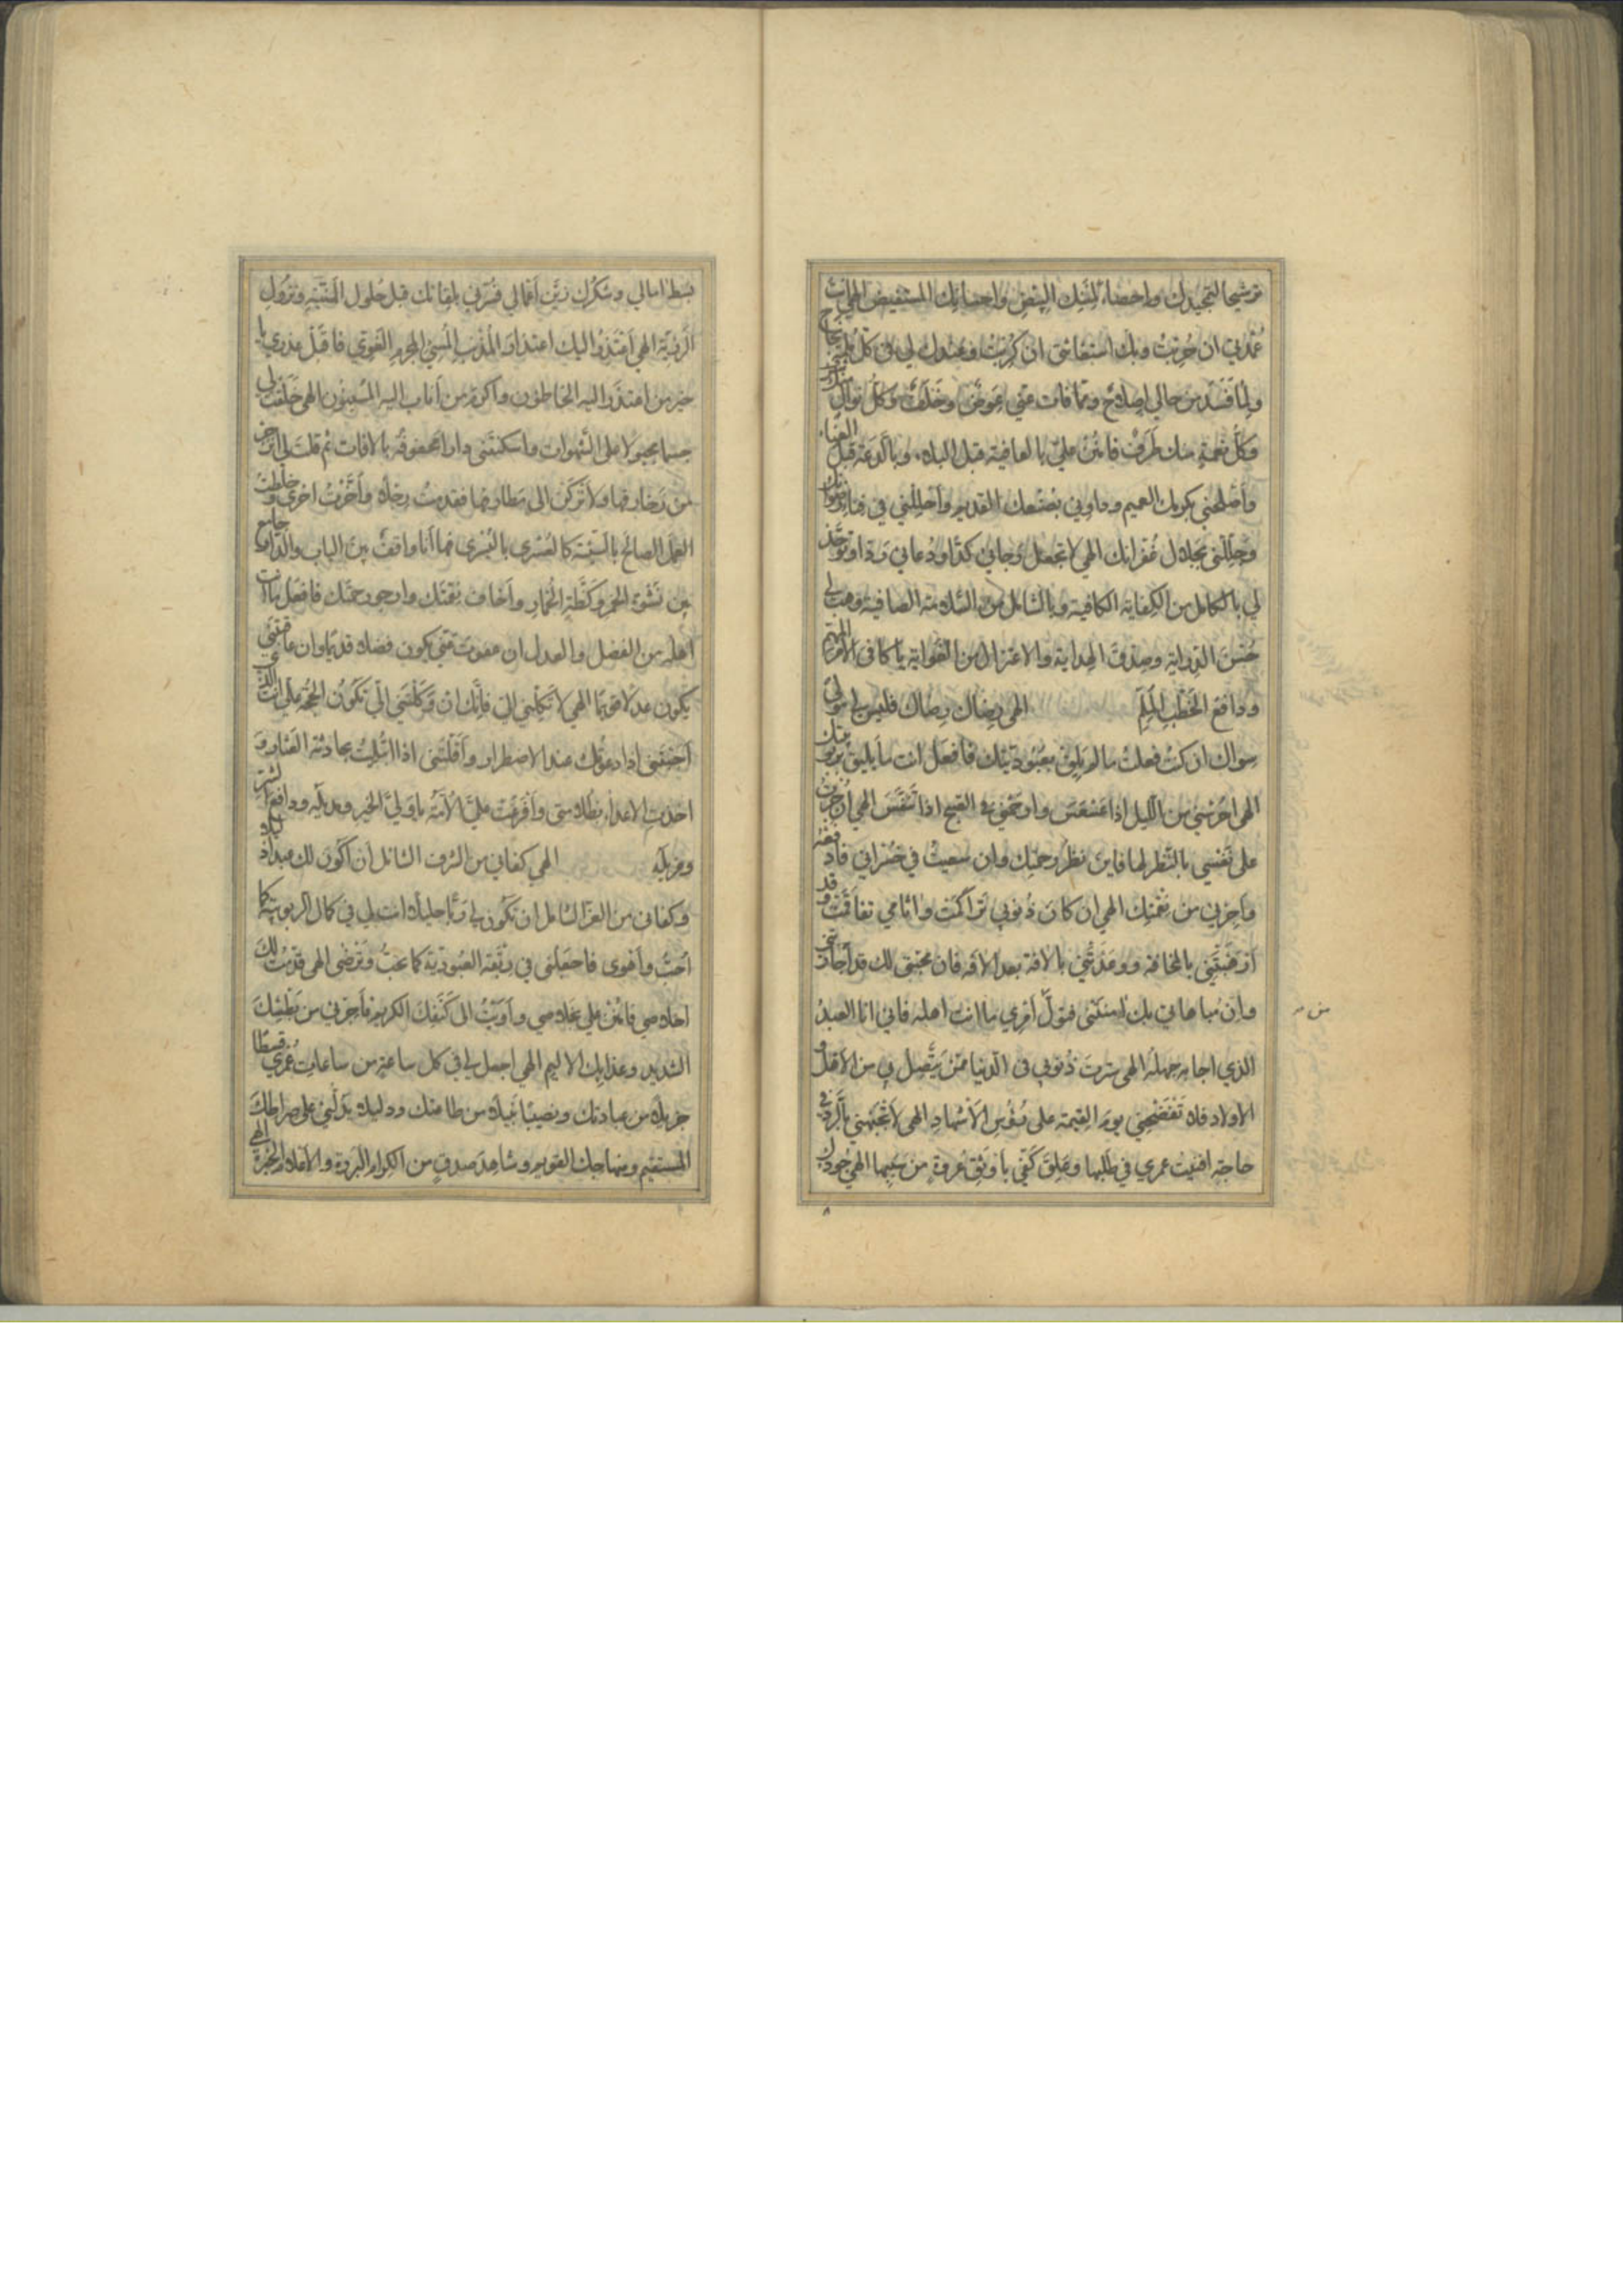 ترشيحا لتمجيدك واحصاء لمننك البيض واحسانك المستفيض الهي انت
عدتي ان حزنت وبك استغاثتي ان كربت وعندك لي في كل
ولما فسد من حالي اصلاح ومما فات عني عوض وخلف وكل نوال
وكل نعمة منك طرف فامنن علي بالعافية قبل البلاء وبالدعة قبل العناء
وأصلحني بكرمك العميم وداوني بصنعك القديم وأحللني في فناء رضوانك
وجللني بجلال غفرانك الهي لا تجعل رجائي كدا ودعائي ردا وخذ
لي بالكامل من الكفاية الكافية وبالشامل من السلامة الصافية وهب لي
حسن الدراية وصدق الهداية والاعتزال من الغواية يا كافي الامر المهم
ودافع الخطب الملم الهي رضاك رضاك فليس لي مولى
سواك ان كنت فعلت ما لم يلق بعبوديتك فافعل انت ما يليق بربوبيتك
الهي احرسني من الليل اذا عسعس وارحمني في الصبح اذا تنفس الهي ان جرت
على نفسي بالنظر لها فاين نظر رحمتك وان سعيت في خسراني فلا
وأجرني من نقمتك الهي ان كان ذنوبي تراكمت واثامي تفاقمت فقد
أرهبتني بالمخافة ووعدتني بالافة بعد الافة فان محبتي لك قد أجارتني
وان مباهاتي بك امنتني فتول أمري ما انت اهله فاني انا العبد
الذي اجابه جهله الهي سترت ذنوبي في الدنيا ممن يتصل بي من الاقل و
الاولاد فلا تفضحني يوم القيمة على رؤس الاشهاد الهي لا تجبهني بالرد في
حاجة افنيت عمري في طلبها وعلق كفي باوثق عروة من سببها الهي جودك
من
بسط امالي وشكرك زين أعمالي فسرني بلقائك قبل حلول المنية ونزول
الرزية الهي أعتذر اليك اعتذار المذنب المسيئ المجرم الغوي فاقبل عذري يا
خير من اعتذر اليه الخاطئون واكرم من أناب اليه المسيئون الهي خلقت لي
جسما مجبولا على الشهوات واسكنتني دارا محفوفة بالافات ثم قلت لي انزجر
من زخارفها ولا تركن الى مطارفها فقدمت رجلا وأخرت اخرى وخلطت
العمل الصالح بالسيئة كالعسرى باليسرى فها أنا واقف بين الباب والدار جامع
بين نشوة الخمر وكظة الخمار وأخاف نقمتك وارجو رحمتك فافعل بي ما انت
أهله من الفضل والعدل ان عفوت عني يكون فضلا قديما وان عاقبتني
يكون عدلا قويما الهي لا تكلني الي فانك ان وكلتني الي تكون الحجة علي انت الذي
أجبتني اذا دعوتك عند الاضطرار وأقلتني اذا ابتليت بحادثة العثار و
اخذت الاعداء بظلامتي وأفرغت علي الأمنة يا ولي الخير ومديله ودافع الشر
ومزيله الهي كفاني من الشرف الشامل أن أكون لك عبدا ذليلا
وكفاني من العز الشامل ان تكون لي ربا جليلا انت لي في كمال الربوبية كما
أحب وأهوى فاجعلني في ربقة العبودية كما تحب وترضى الهي قدمت لك
اخلاصي فامنن علي بخلاصي وأويت الى كنفك الكريم فأجرني من بطشك
الشديد وعذابك الاليم الهي اجعل لي في كل ساعة من ساعات عمري قسطا
جزيلا من عبادتك ونصيبا نبيلا من طاعتك ودليلا يدلني على صراطك
المستقيم ومنهاجك القويم وشاهد صدق من الكرام البررة والاعلام الخيرة الهي